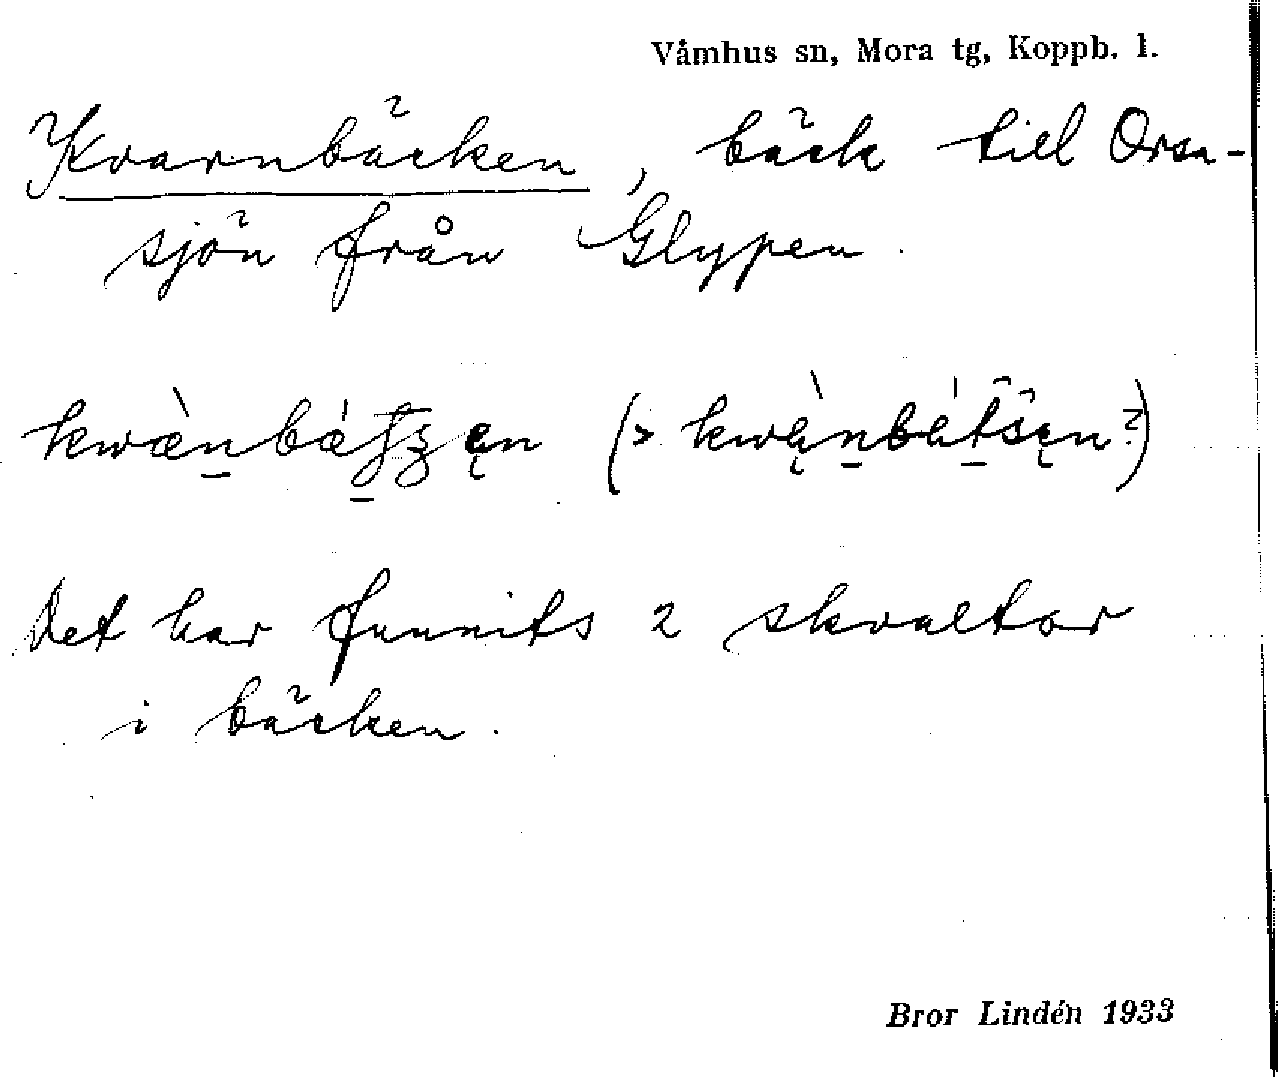 Våmhus sn, Mora tg, Koppb. l.
Kvarnbäcken, bäck till Orsa-
sjön från Glypen.
Det har funnits 2 skvaltor
i bäcken.
Bror Lindén 1933